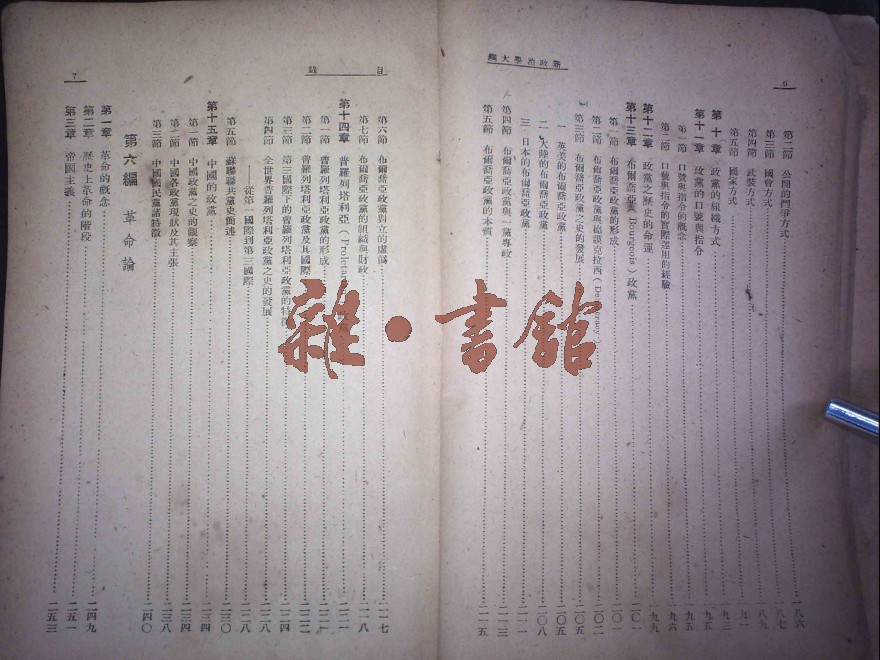 新政治學大綱
6
第二節 公開的鬥爭方式 一八六
第三節 國會方式 一八七
第四節 武裝方式 一八九
第五節 國家方式 一九一
第十章 政黨的組織方式 一九三
第十一章 政黨的口號與指令 一九五
第一節 口號與指令的概念 一九六
第二節 口號與指令的實際運用的經驗 一九九
第十二章 政黨之歷史的命運
第十三章 布爾喬亞（Bourgeois）政黨 二〇一
第一節 布爾喬亞政黨的形成 二〇一
第二節 布爾喬亞政黨與德謨克拉西 二〇二
第三節 布爾喬亞政黨之史的發展 二〇五
一 英美的布爾喬亞政黨 二〇五
二 大陸的布爾喬亞政黨 二〇八
三 日本的布爾喬亞政黨 二一一
第四節 布爾喬亞政黨與一黨專政 二一三
第五節 布爾喬亞政黨的本質 二一五
目錄
7
第六節 布爾喬亞政黨對立的虛偽 二一七
第七節 布爾喬亞政黨的組織與財政 二一八
第十四章 普羅列塔利亞 二二一
第一節 普羅列塔利亞政黨的形成 二二一
第二節 普羅列塔利亞政黨及其國際 二二二
第三節 第三國際下的普羅列塔利亞政黨的特徵 二二四
第四節 全世界普羅列塔利亞政黨之史的發展 二二八
——從第一國際到第三國際 二二八
第五節 蘇聯聯共黨史簡述 二三〇
第十五章 中國的政黨 二三四
第一節 中國政黨之史的觀察 二三四
第二節 中國各政黨現狀及其主張 二三八
第三節 中國國民黨諸特徵 二四〇
第六編 革命論
第一章 革命的概念 二四九
第二章 歷史上革命的階段 二五一
第三章 帝國主義 二五三
雜·書館